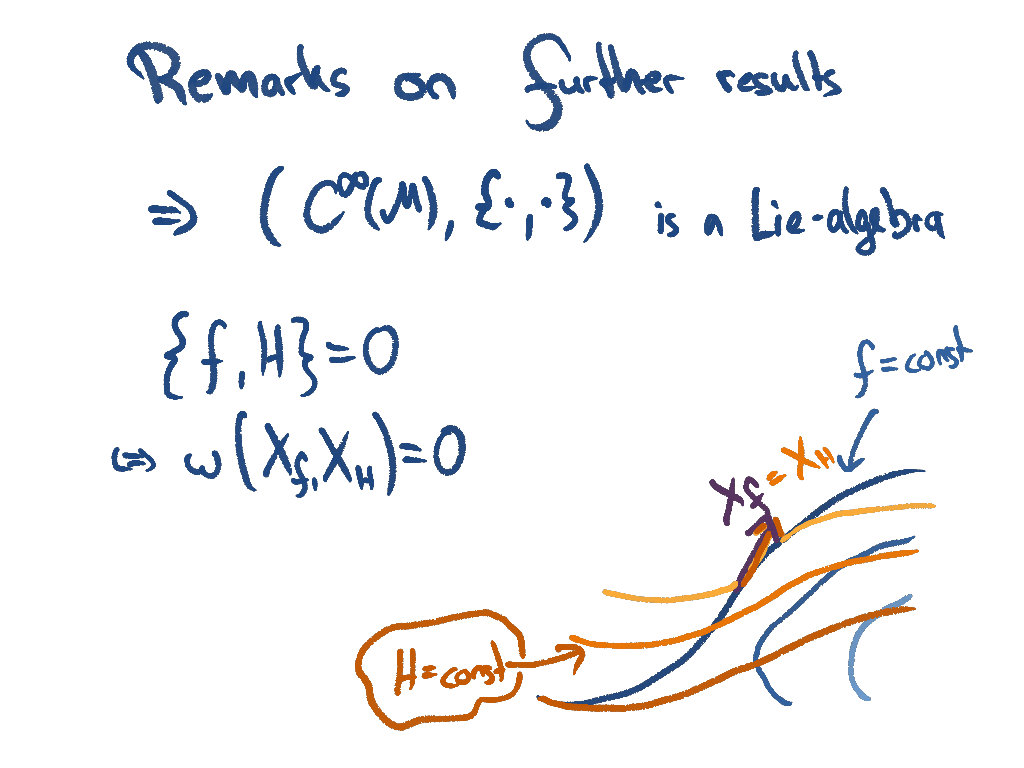 Remarks on further results
⇒ (C^∞(M), {·,·}) is a Lie-algebra
{f,H}=0
f=const
⇔ ω(X_f, X_H)=0
X_f=X_H
H=const